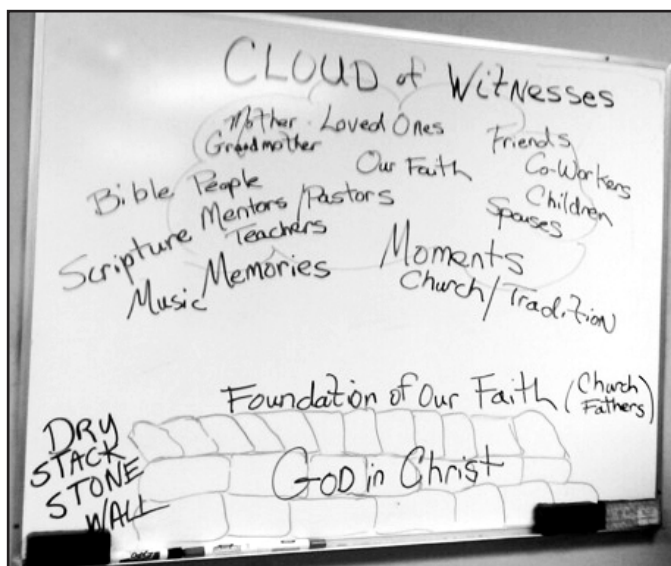 CLOUD of WITNESSES
Mother Loved Ones
Grandmother
Friends
Our Faith
Co-Workers
Bible People
Children
Scripture Mentors/Pastors
Spouses
Teachers
Moments
Memories
Music
Church/Tradition
Foundation of Our Faith (Church Fathers)
DRY
STACK
STONE
WALL
GOD in Christ